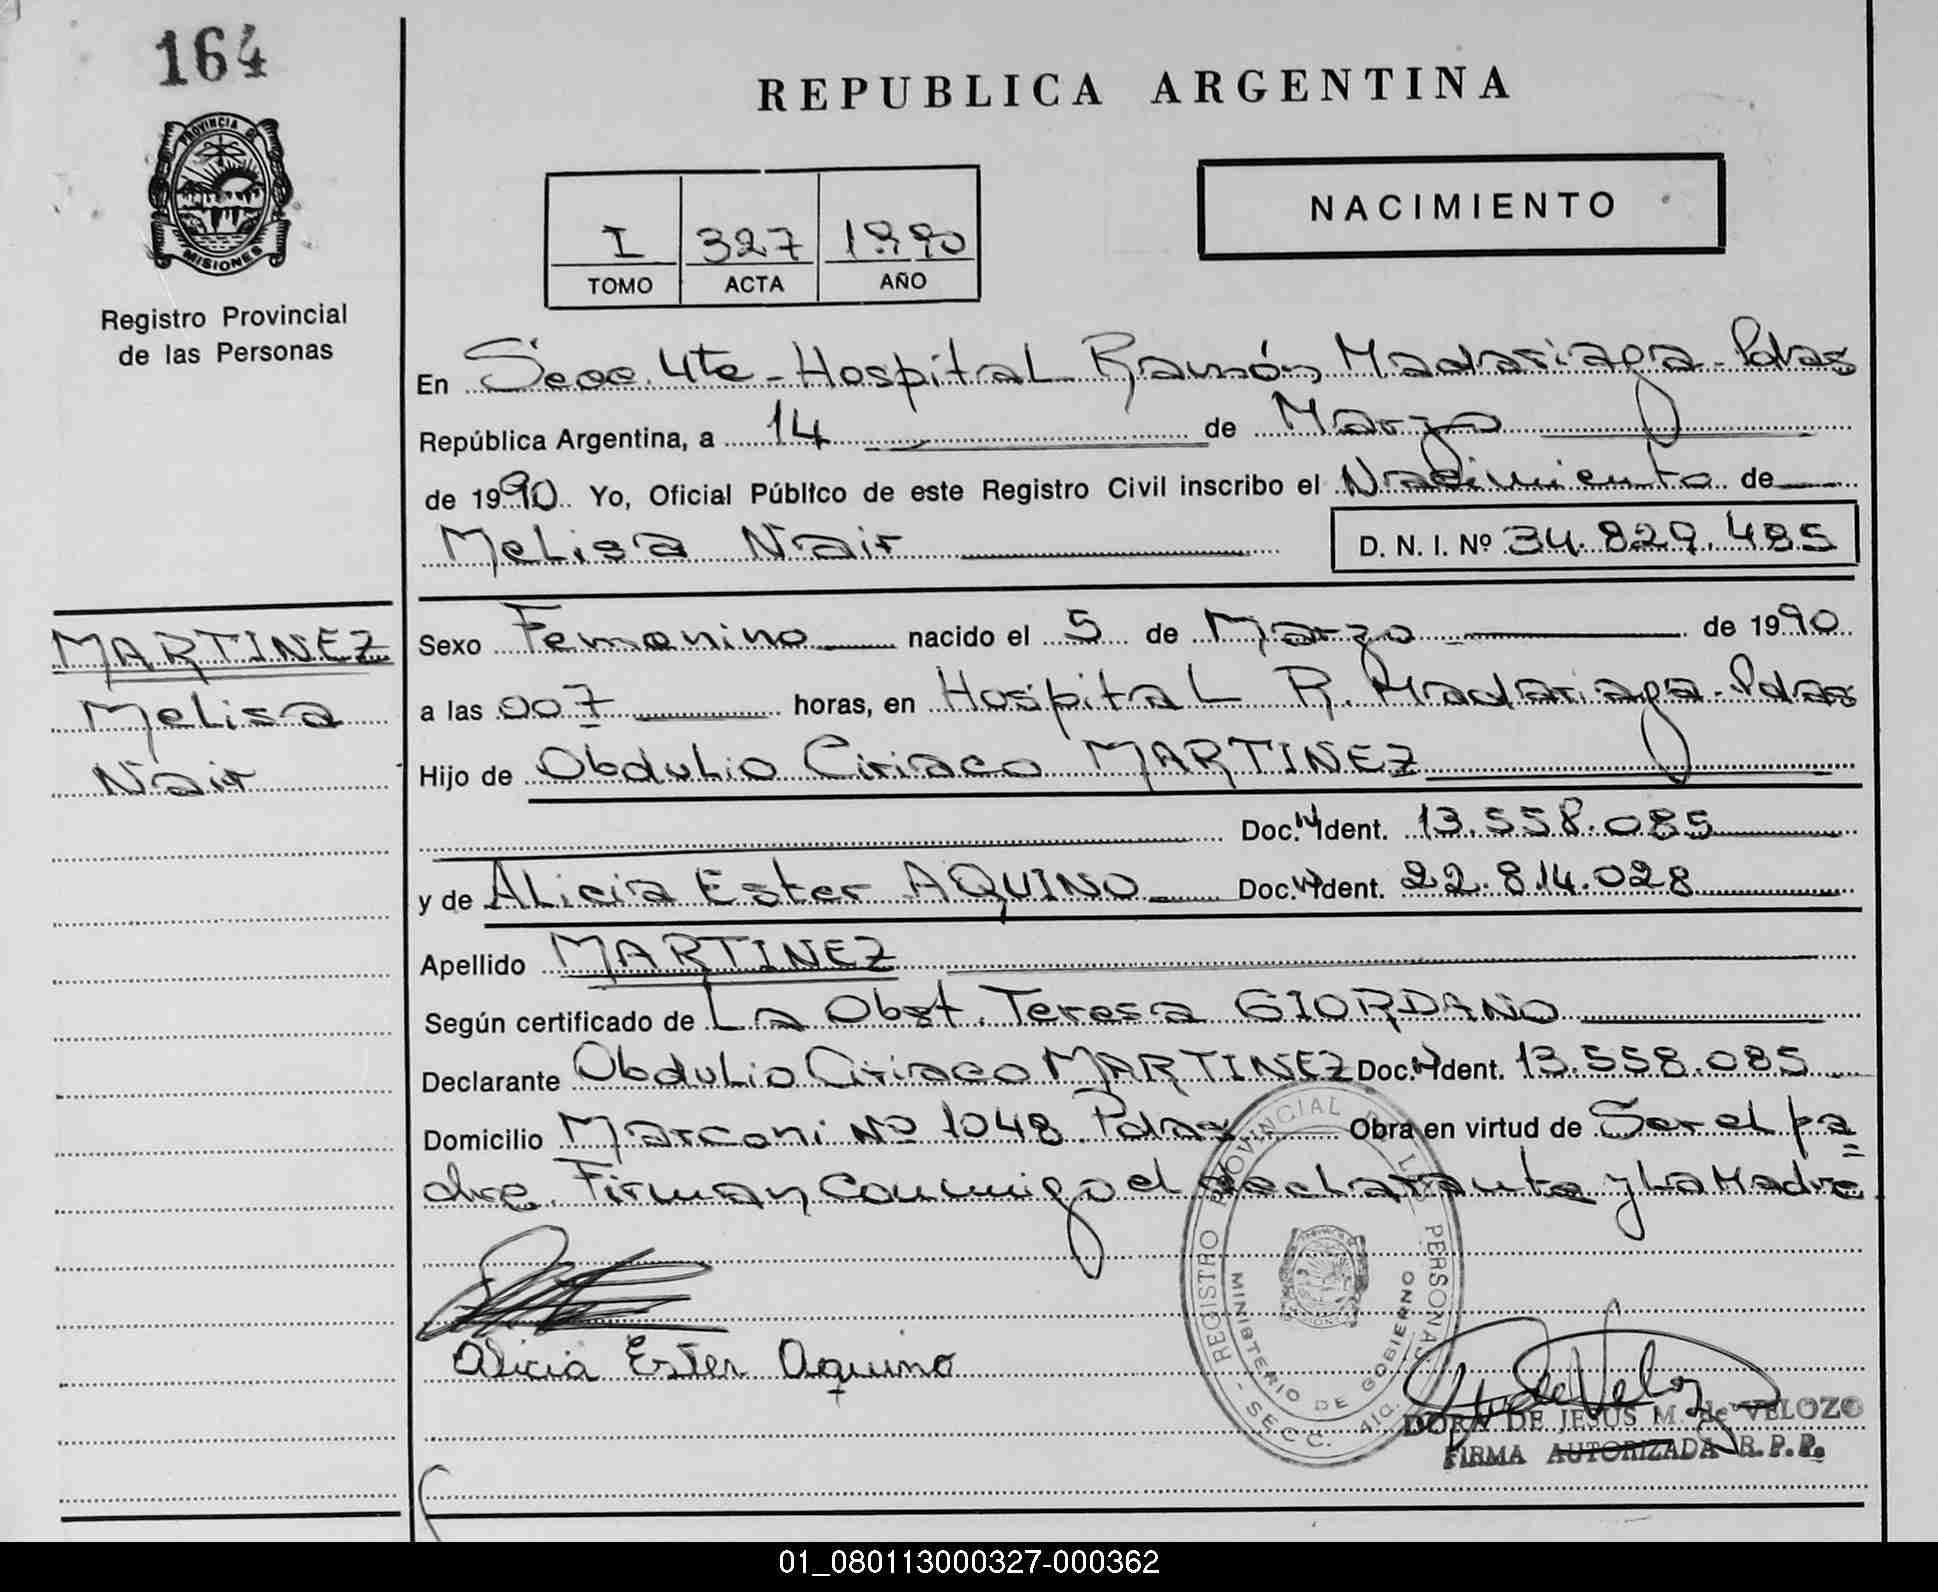 164
PROVINCIA DE
MISIONES
Registro Provincial
de las Personas
REPUBLICA ARGENTINA
I 327 1990
TOMO ACTA AÑO
NACIMIENTO
En Secc. 4ta - Hospital Ramón Madariaga - Pdas
República Argentina, a 14 de Marzo
de 1990. Yo, Oficial Público de este Registro Civil inscribo el Nacimiento de
Melisa Nair D. N. I. Nº 34.829.485
MARTINEZ
Melisa
Nair
Sexo Femenino nacido el 5 de Marzo de 1990
a las 007 horas, en Hospital R. Madariaga - Pdas
Hijo de Obdulio Ciriaco MARTINEZ
Doc. N Ident. 13.558.085
y de Alicia Ester AQUINO Doc. N Ident. 22.814.028
Apellido MARTINEZ
Según certificado de La Obst. Teresa GIORDANO
Declarante Obdulio Ciriaco MARTINEZ Doc. N Ident. 13.558.085
Domicilio Marconi Nº 1048 Pdas Obra en virtud de Ser el pa=
dre. Firman conmigo el declarante y La Madre.
Alicia Ester Aquino
REGISTRO PROVINCIAL DE LAS PERSONAS
MINISTERIO DE GOBIERNO
- SECC. 4ta.
DORA DE JESUS M. de VELOZO
FIRMA AUTORIZADA R.P.P.
01_080113000327-000362